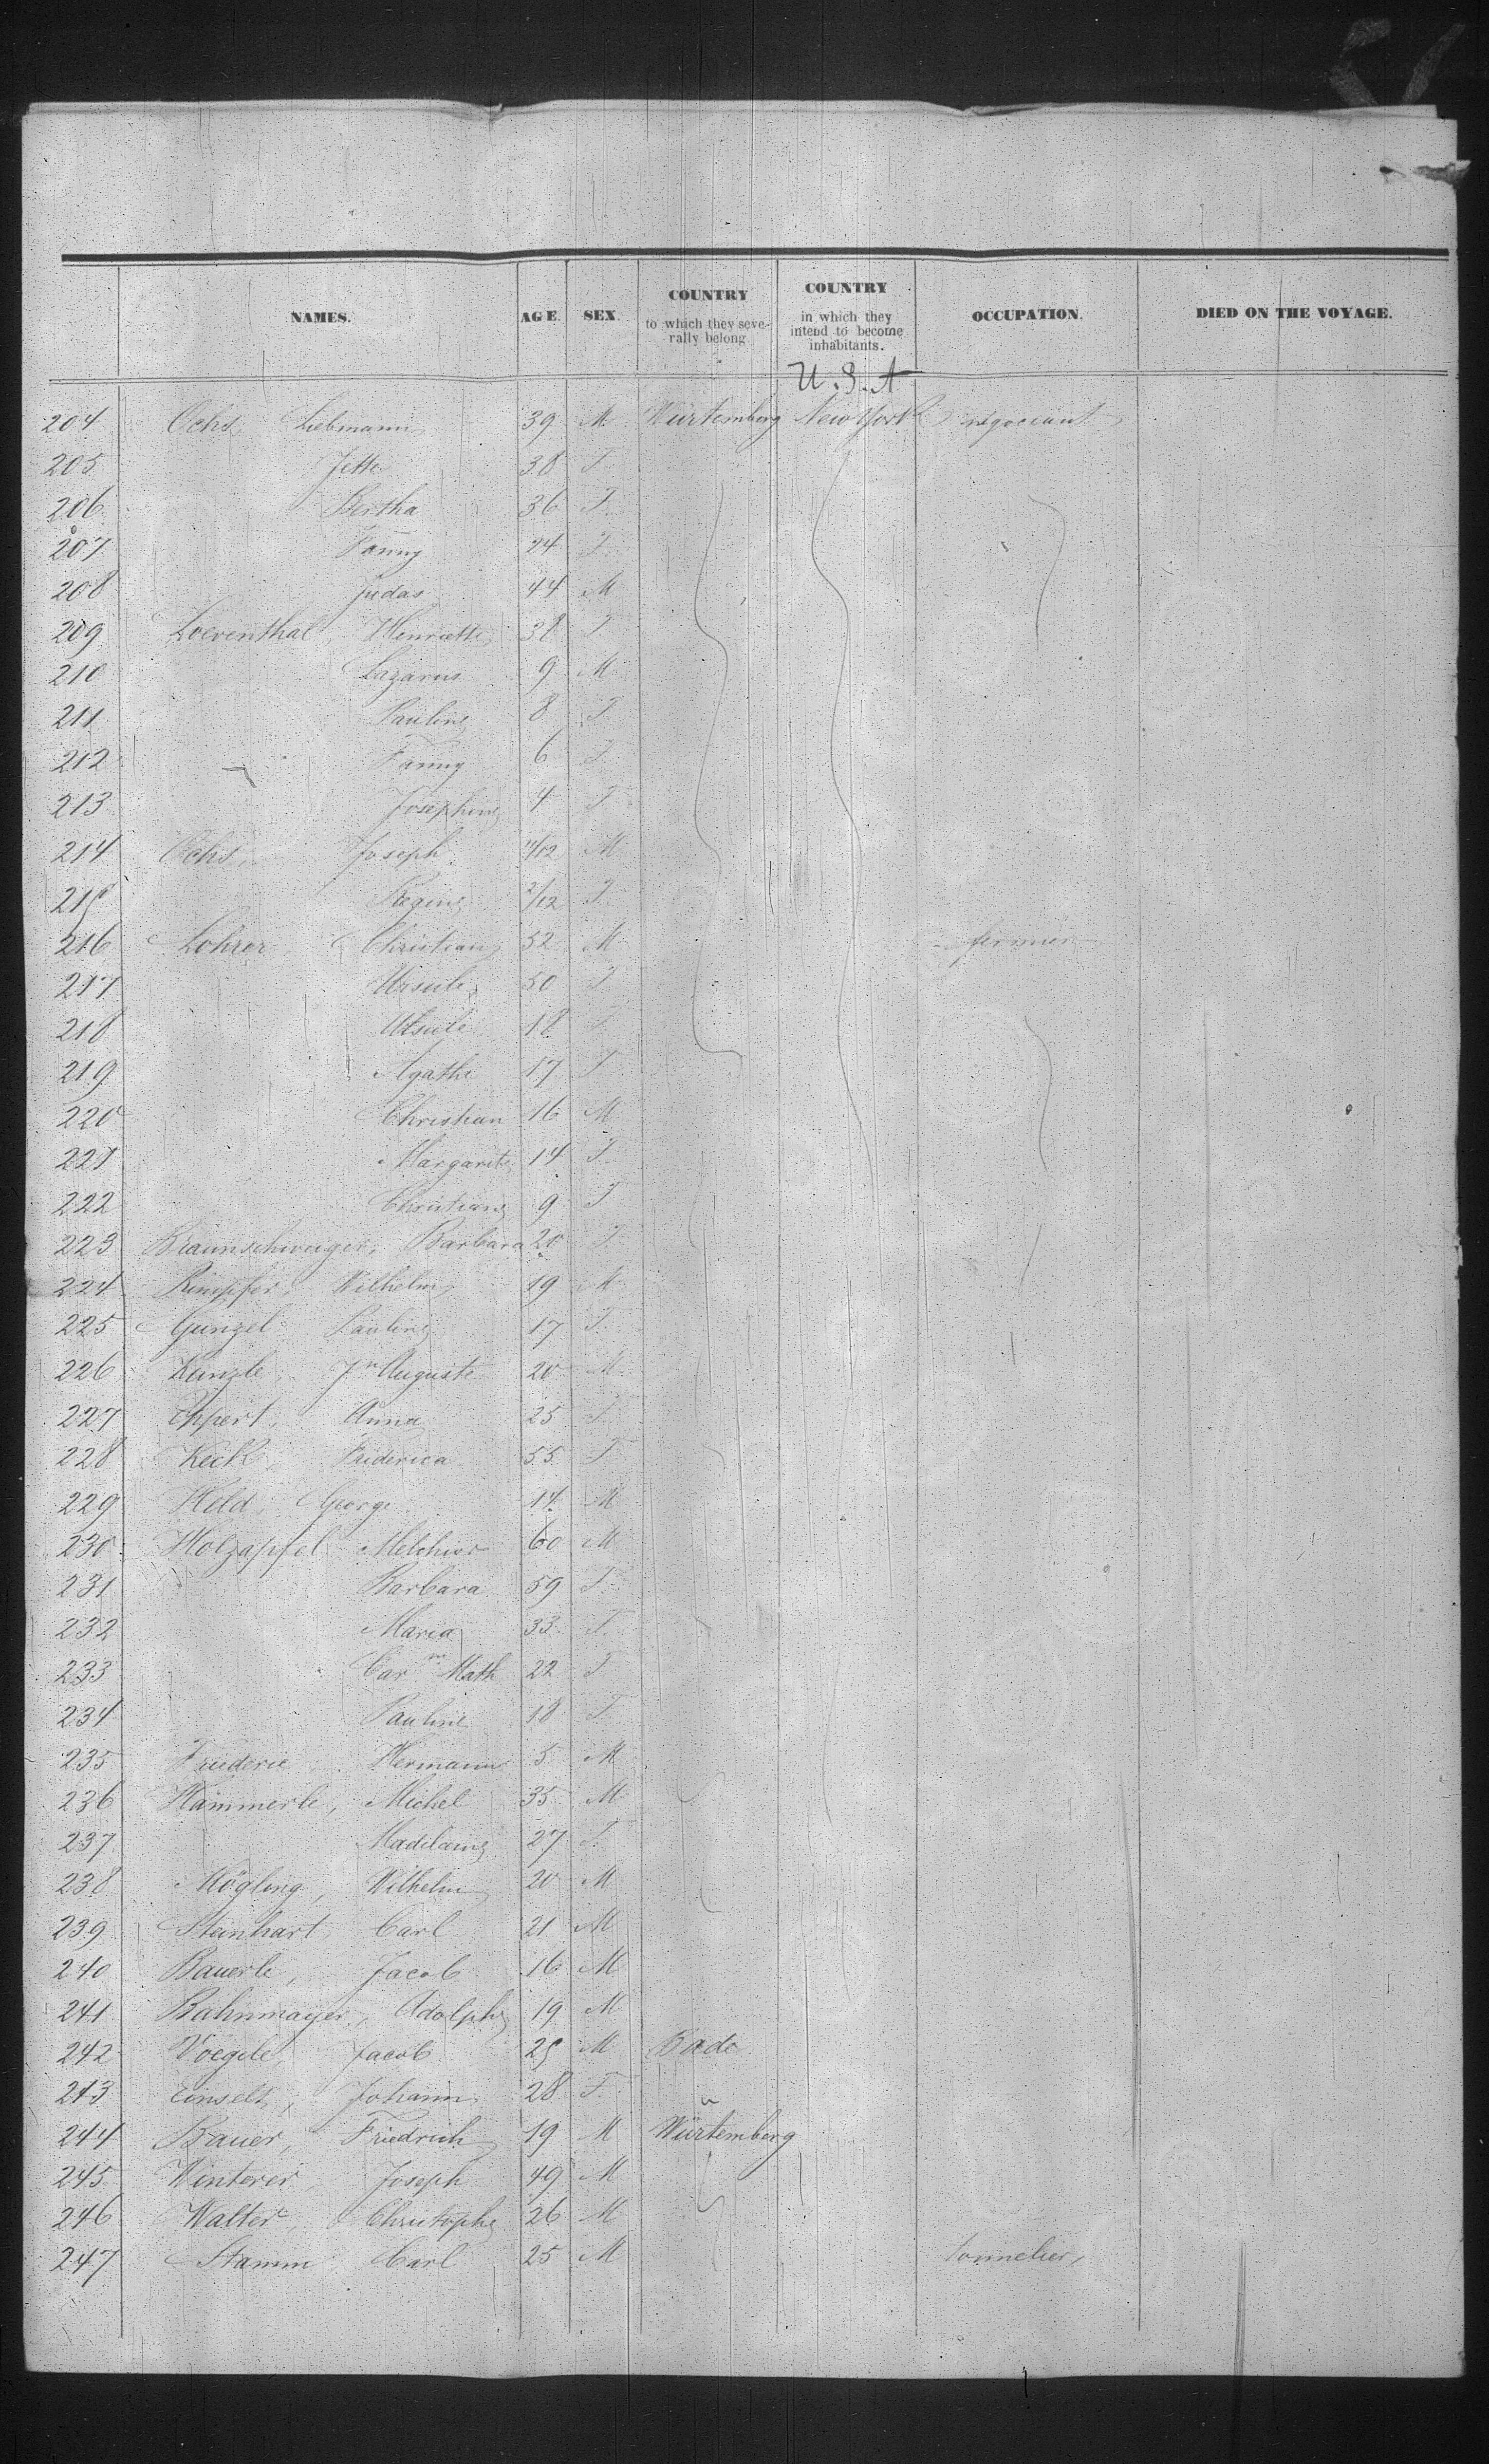 NAMES. AGE. SEX. COUNTRY to which they severally belong. COUNTRY in which they intend to become inhabitants. OCCUPATION. DIED ON THE VOYAGE.
U.S.A
204 Ochs, Liebmann 39 M Würtemberg New York négociant
205 Jette 38 F
206 Bertha 36 F
207 Fanny 24 F
208 Judas 44 M
209 Loeventhal, Henriette 38 F
210 Lazarus 9 M
211 Pauline 8 F
212 Fanny 6 F
213 Josephine 4 F
214 Ochs, Joseph 11/12 M
215 Regine 2/12 F
216 Lohrer Christian 52 M fermier
217 Ursule 50 F
218 Ursule 18 F
219 Agathe 17 F
220 Christian 16 M
221 Margarite 14 F
222 Christiane 9 F
223 Braunschweiger, Barbara 20 F
224 Wilhelm 19 M
225 Gunzel Pauline 17 F
226 Kunzle, Jn Auguste 20 M
227 Eppert, Anna 25 F
228 Keck, Friderica 55 F
229 Held, George 14 M
230 Holzapfel Melchior 60 M
231 Barbara 59 F
232 Maria 33 F
233 Car Math 22 F
234 Pauline 18 F
235 Friederic Hermann 5 M
236 Hammerle, Michel 35 M
237 Madelaine 27 F
238 Mögling, Wilhelm 20 M
239 Steinhart Carl 21 M
240 Bauerle, Jacob 16 M
241 Bahnmayer, Adolphe 19 M
242 Voegele, Jacob 25 M Bade
243 Einselt, Johann 28 F "
244 Bauer, Friedrich 19 M Würtemberg
245 Winterer, Joseph 49 M
246 Walter, Christophe 26 M
247 Stamm Carl 25 M tonnelier